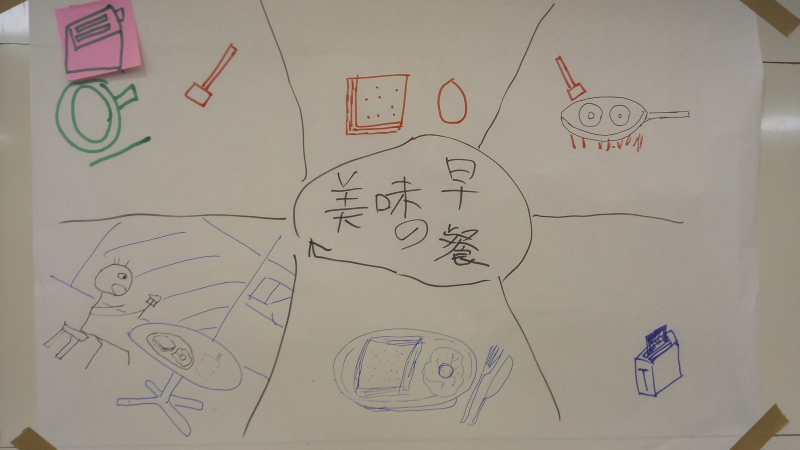 美味の
早餐